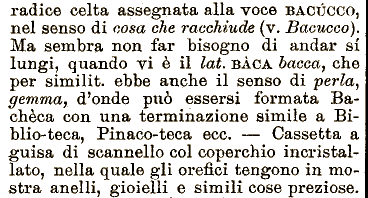 radice celta assegnata alla voce BACÚCCO,
nel senso di cosa che racchiude (v. Bacucco).
Ma sembra non far bisogno di andar sí
lungi, quando vi è il lat. BÀCA bacca, che
per similit. ebbe anche il senso di perla,
gemma, d'onde può essersi formata Ba-
chèca con una terminazione simile a Bi-
blio-teca, Pinaco-teca ecc. — Cassetta a
guisa di scannello col coperchio incristal-
lato, nella quale gli orefici tengono in mo-
stra anelli, gioielli e simili cose preziose.